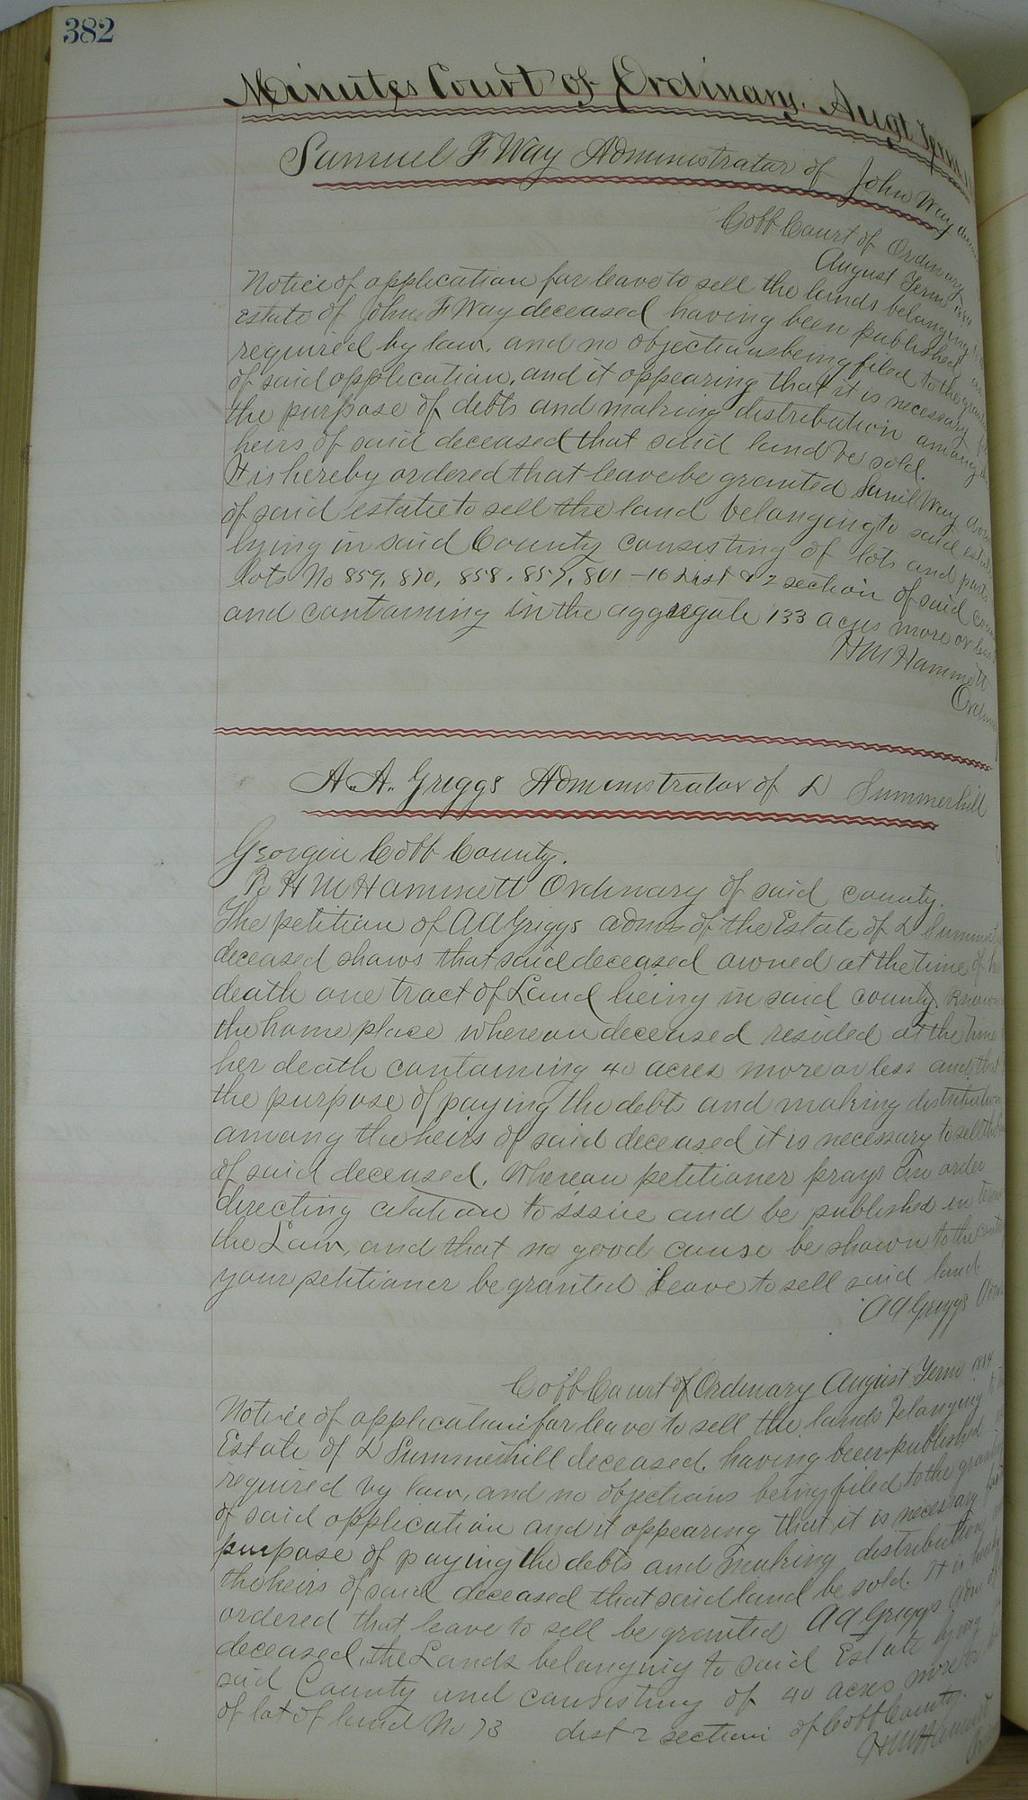 382
Minutes Court of Ordinary. Augt Term
Samuel F Way Administrator of John Way
Cobb Court of Ordinary
August Term
Notice of application for leave to sell the lands belonging
estate of John F Way deceased having been published
required by law. and no objections being filed to the
of said application. and it appearing that it is necessary
the purpose of debts and making distribution among
heirs of said deceased that said land be sold.
It is hereby ordered that leave be granted Saml Way
of said estate to sell the land belonging to said
lying in said County consisting of lots and parts
lots No 859, 870, 858, 857, 801 - 16 Dist & 2 section of said
and containing in the aggregate 133 acres more or less
H M Hammett
A. A. Griggs Administrator of D Summerhill
Georgia Cobb County.
To H M Hammett Ordinary of said county.
The petition of A A Griggs admr of the Estate of D
deceased shows that said deceased owned at the time of
death one tract of Land being in said county known
the home place whereon deceased resided at the time
her death containing 40 acres more or less and that
the purpose of paying the debts and making distribution
among the heirs of said deceased it is necessary to sell
of said deceased. Whereon petitioner prays an order
directing citation to issue and be published in
the Law, and that no good cause be shown to the
your petitioner be granted leave to sell said land
A A Griggs
Cobb Court of Ordinary August Term 1884
Notice of application for leave to sell the lands belonging
Estate of D Summerhill deceased. having been published
required by law, and no objections being filed to the
of said application and it appearing that it is necessary
purpose of paying the debts and making distribution
the heirs of said deceased that said land be sold. It is
ordered that leave to sell be granted A A Griggs
deceased, the Lands belonging to said Estate lying
said County and consisting of 40 acres more
of lot of land No 73 dist 2 section of Cobb County.
H M Hammett